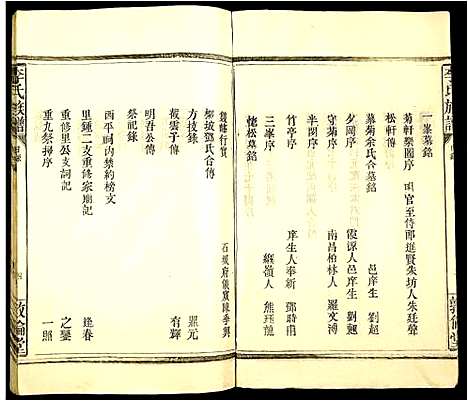 一峯墓銘
菊軒樂圃序 官至侍郎進賢朱坊人朱廷聲
松軒傳
墓菊余氏合墓銘 邑庠生 劉超
夕岡序 霞源人邑庠生 劉魁
守菊序 南昌柏林人 羅文溥
半閑序
竹亭序 庠生人奉新 鄧時甫
一峯序
愧松墓銘 嶺人 熊
行實 石城府儀賓陳季興
坡鄧氏合傳
方技錄 羅元
截雲子傳 有輝
明吾公傳
祭祀錄
西平祠內禁約榜文
里鍾二支重修家廟記 逢春
重修里公支祠記 之鑒
重九祭掃序 一照
李氏族譜
敦倫堂